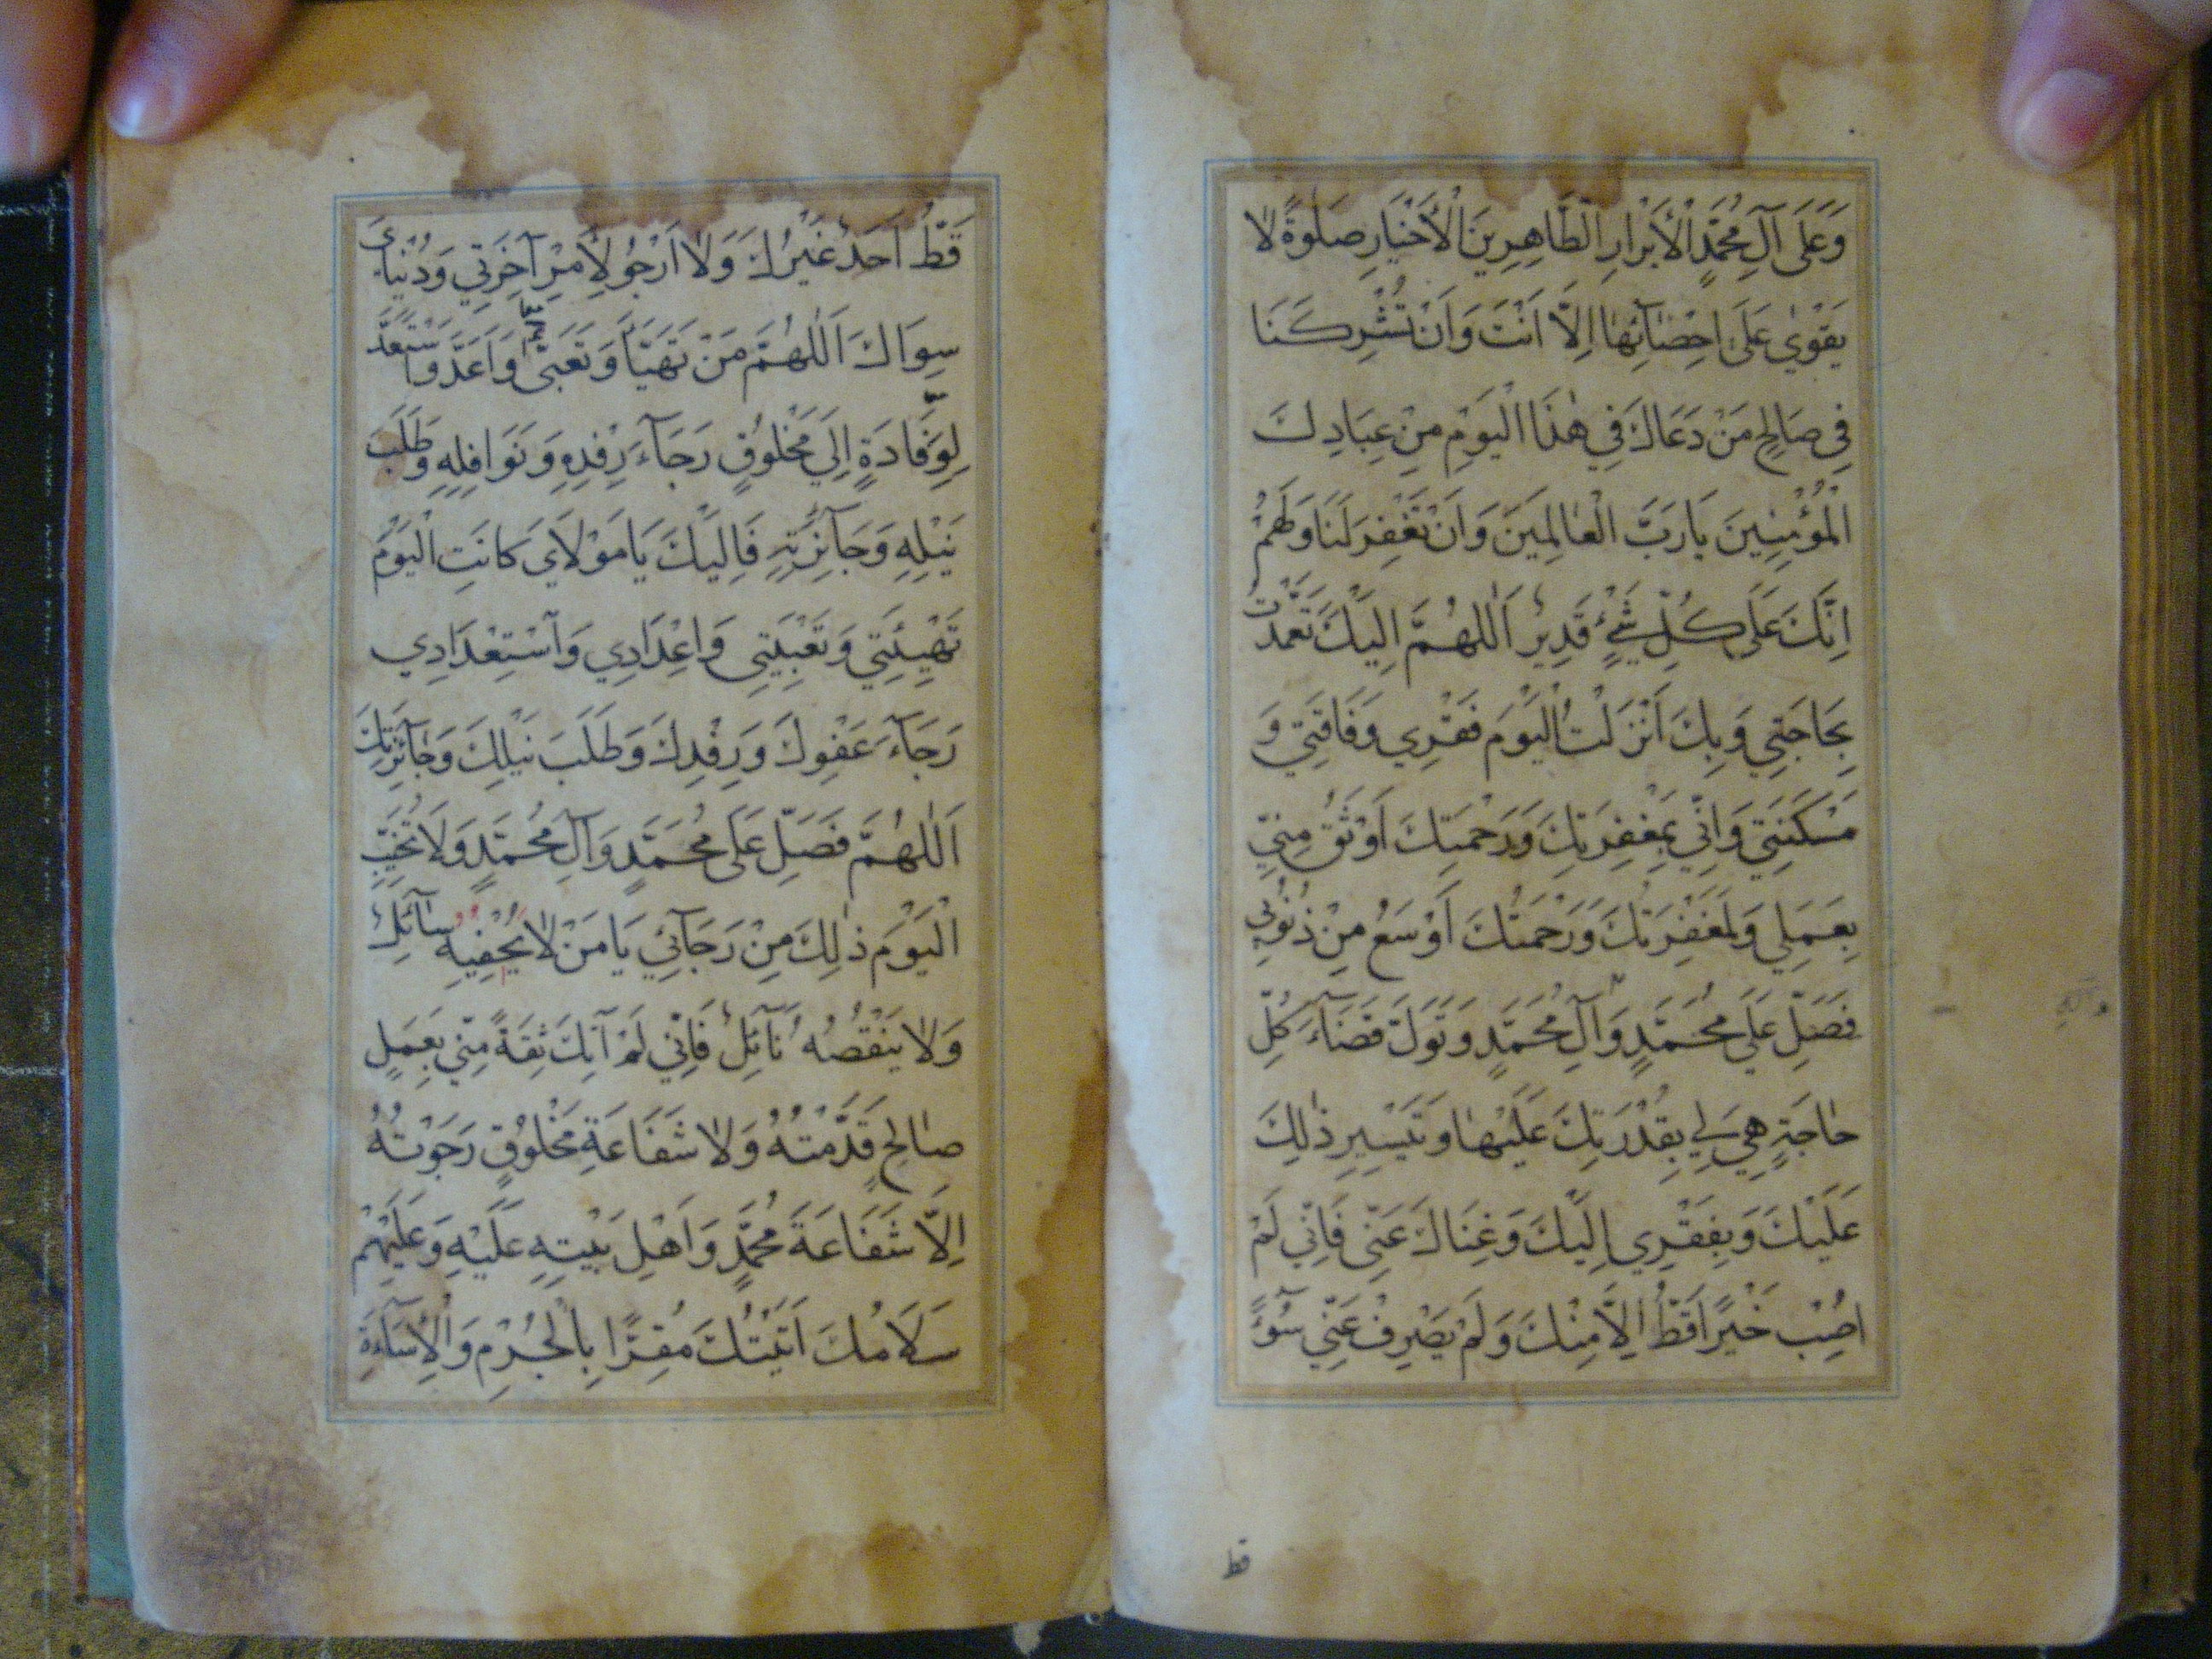 وَعَلَى آلِ مُحَمَّدٍ الْأَبْرَارِ الطَّاهِرِينَ الْأَخْيَارِ صَلٰوةً لَا
يَقْوٰي عَلَى اِحْصَائِهَا اِلَّا اَنْتَ وَاَنْ تُشْرِكَنَا
فِي صَالِحِ مَنْ دَعَاكَ فِي هٰذَا الْيَوْمِ مِنْ عِبَادِكَ
الْمُؤْمِنِينَ يَا رَبَّ الْعَالَمِينَ وَاَنْ تَغْفِرَ لَنَا وَلَهُمْ
اِنَّكَ عَلَى كُلِّ شَيْءٍ قَدِيرٌ اَللّٰهُمَّ اِلَيْكَ تَعَمَّدْتُ
بِحَاجَتِي وَبِكَ اَنْزَلْتُ الْيَوْمَ فَقْرِي وَفَاقَتِي وَ
مَسْكَنَتِي وَاِنِّي بِمَغْفِرَتِكَ وَرَحْمَتِكَ اَوْثَقُ مِنِّي
بِعَمَلِي وَلَمَغْفِرَتُكَ وَرَحْمَتُكَ اَوْسَعُ مِنْ ذُنُوبِي
فَصَلِّ عَلَى مُحَمَّدٍ وَآلِ مُحَمَّدٍ وَتَوَلَّ قَضَآءَ كُلِّ
حَاجَةٍ هِيَ لِي بِقُدْرَتِكَ عَلَيْهَا وَتَيْسِيرِ ذٰلِكَ
عَلَيْكَ وَبِفَقْرِي اِلَيْكَ وَغِنَاكَ عَنِّي فَاِنِّي لَمْ
اُصِبْ خَيْرًا قَطُّ اِلَّا مِنْكَ وَلَمْ يَصْرِفْ عَنِّي سُوٓءً
قط
قَطُّ اَحَدٌ غَيْرُكَ وَلَا اَرْجُو لِأَمْرِ آخِرَتِي وَدُنْيَايَ
سِوَاكَ اَللّٰهُمَّ مَنْ تَهَيَّأَ وَتَعَبَّى وَاَعَدَّ وَاسْتَعَدَّ
لِوِفَادَةٍ اِلَى مَخْلُوقٍ رَجَآءَ رِفْدِهِ وَنَوَافِلِهِ وَطَلَبَ
نَيْلِهِ وَجَآئِزَتِهِ فَاِلَيْكَ يَا مَوْلَايَ كَانَتِ الْيَوْمَ
تَهْيِئَتِي وَتَعْبِئَتِي وَاِعْدَادِي وَاسْتِعْدَادِي
رَجَآءَ عَفْوِكَ وَرِفْدِكَ وَطَلَبَ نَيْلِكَ وَجَآئِزَتِكَ
اَللّٰهُمَّ فَصَلِّ عَلَى مُحَمَّدٍ وَآلِ مُحَمَّدٍ وَلَا تُخَيِّبِ
الْيَوْمَ ذٰلِكَ مِنْ رَجَآئِي يَا مَنْ لَا يُحْفِيهِ سَآئِلٌ
وَلَا يَنْقُصُهُ نَآئِلٌ فَاِنِّي لَمْ آتِكَ ثِقَةً مِنِّي بِعَمَلٍ
صَالِحٍ قَدَّمْتُهُ وَلَا شَفَاعَةِ مَخْلُوقٍ رَجَوْتُهُ
اِلَّا شَفَاعَةَ مُحَمَّدٍ وَاَهْلِ بَيْتِهِ عَلَيْهِ وَعَلَيْهِمْ
سَلَامُكَ اَتَيْتُكَ مُقِرًّا بِالْجُرْمِ وَالْاِسَآءَةِ